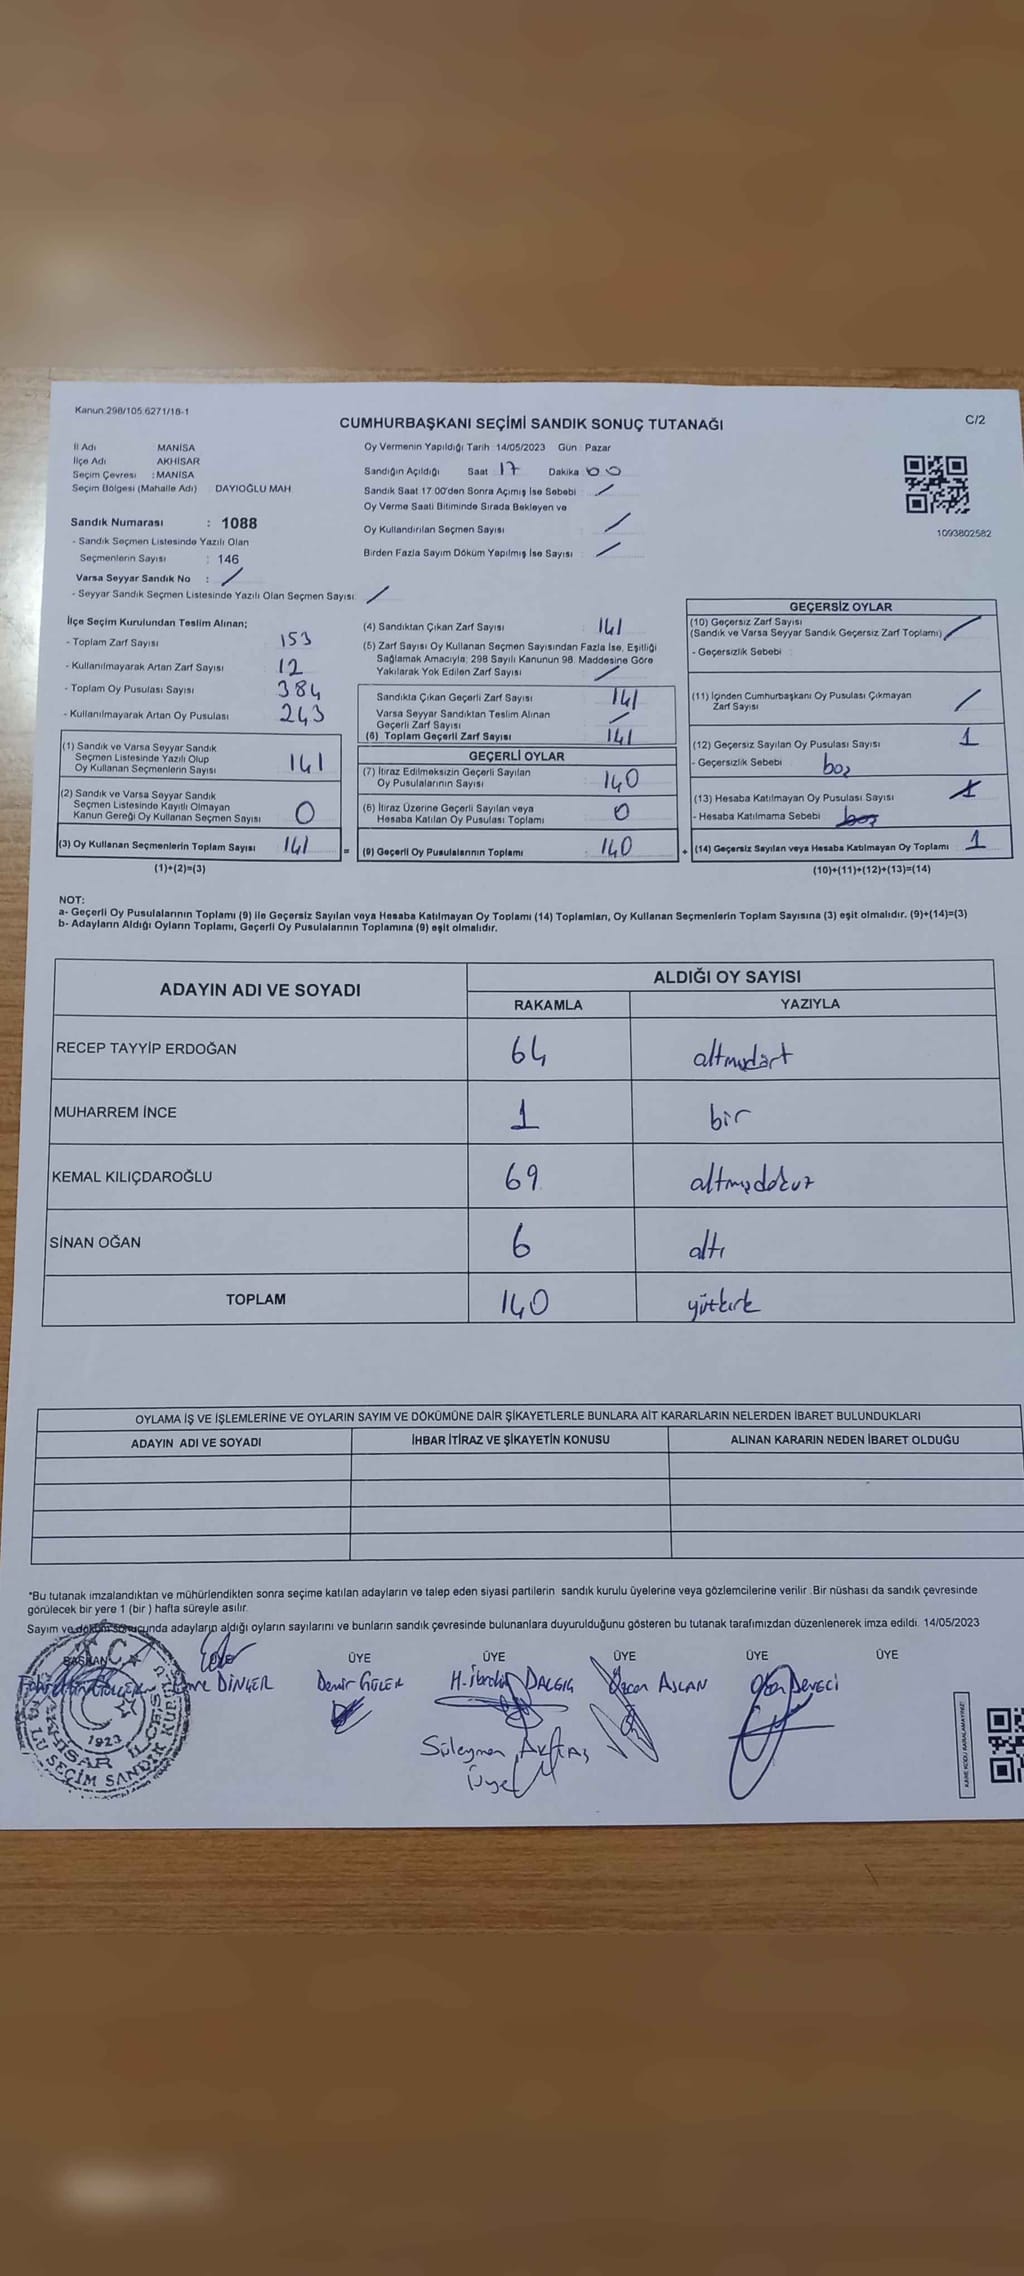 Kanun 298/105.6271/18-1
CUMHURBAŞKANI SEÇİMİ SANDIK SONUÇ TUTANAĞI
C/2
İl Adı MANİSA
İlçe Adı AKHİSAR
Seçim Çevresi : MANİSA
Seçim Bölgesi (Mahalle Adı) DAYIOĞLU MAH
Sandık Numarası : 1088
- Sandık Seçmen Listesinde Yazılı Olan
Seçmenlerin Sayısı : 146
Varsa Seyyar Sandık No : /
- Seyyar Sandık Seçmen Listesinde Yazılı Olan Seçmen Sayısı: /
Oy Vermenin Yapıldığı Tarih 14/05/2023 Gün : Pazar
Sandığın Açıldığı Saat : 17 Dakika : 00
Sandık Saat 17 00'den Sonra Açımış İse Sebebi : /
Oy Verme Saati Bitiminde Sırada Bekleyen ve
Oy Kullandırılan Seçmen Sayısı : /
Birden Fazla Sayım Döküm Yapılmış İse Sayısı : /
1093802582
İlçe Seçim Kurulundan Teslim Alınan;
- Toplam Zarf Sayısı : 153
- Kullanılmayarak Artan Zarf Sayısı : 12
- Toplam Oy Pusulası Sayısı : 384
- Kullanılmayarak Artan Oy Pusulası : 243
(1) Sandık ve Varsa Seyyar Sandık
Seçmen Listesinde Yazılı Olup
Oy Kullanan Seçmenlerin Sayısı : 141
(2) Sandık ve Varsa Seyyar Sandık
Seçmen Listesinde Kayıtlı Olmayan
Kanun Gereği Oy Kullanan Seçmen Sayısı : 0
(3) Oy Kullanan Seçmenlerin Toplam Sayısı : 141
(1)+(2)=(3)
(4) Sandıktan Çıkan Zarf Sayısı : 141
(5) Zarf Sayısı Oy Kullanan Seçmen Sayısından Fazla İse, Eşitliği
Sağlamak Amacıyla; 298 Sayılı Kanunun 98. Maddesine Göre
Yakılarak Yok Edilen Zarf Sayısı : /
Sandıkta Çıkan Geçerli Zarf Sayısı : 141
Varsa Seyyar Sandıktan Teslim Alınan
Geçerli Zarf Sayısı : /
(6) Toplam Geçerli Zarf Sayısı : 141
GEÇERLİ OYLAR
(7) İtiraz Edilmeksizin Geçerli Sayılan
Oy Pusulalarının Sayısı : 140
(6) İtiraz Üzerine Geçerli Sayılan veya
Hesaba Katılan Oy Pusulası Toplamı : 0
= (9) Geçerli Oy Pusulalarının Toplamı : 140
GEÇERSİZ OYLAR
(10) Geçersiz Zarf Sayısı
(Sandık ve Varsa Seyyar Sandık Geçersiz Zarf Toplamı) /
- Geçersizlik Sebebi :
(11) İçinden Cumhurbaşkanı Oy Pusulası Çıkmayan
Zarf Sayısı : /
(12) Geçersiz Sayılan Oy Pusulası Sayısı : 1
- Geçersizlik Sebebi : boş
(13) Hesaba Katılmayan Oy Pusulası Sayısı : 1
- Hesaba Katılmama Sebebi : boş
+ (14) Geçersiz Sayılan veya Hesaba Katılmayan Oy Toplamı : 1
(10)+(11)+(12)+(13)=(14)
NOT:
a- Geçerli Oy Pusulalarının Toplamı (9) ile Geçersiz Sayılan veya Hesaba Katılmayan Oy Toplamı (14) Toplamları, Oy Kullanan Seçmenlerin Toplam Sayısına (3) eşit olmalıdır. (9)+(14)=(3)
b- Adayların Aldığı Oyların Toplamı, Geçerli Oy Pusulalarının Toplamına (9) eşit olmalıdır.
ADAYIN ADI VE SOYADI ALDIĞI OY SAYISI
RAKAMLA YAZIYLA
RECEP TAYYİP ERDOĞAN 64 altmışdört
MUHARREM İNCE 1 bir
KEMAL KILIÇDAROĞLU 69 altmışdokuz
SİNAN OĞAN 6 altı
TOPLAM 140 yüzkırk
OYLAMA İŞ VE İŞLEMLERİNE VE OYLARIN SAYIM VE DÖKÜMÜNE DAİR ŞİKAYETLERLE BUNLARA AİT KARARLARIN NELERDEN İBARET BULUNDUKLARI
ADAYIN ADI VE SOYADI İHBAR İTİRAZ VE ŞİKAYETİN KONUSU ALINAN KARARIN NEDEN İBARET OLDUĞU
*Bu tutanak imzalandıktan ve mühürlendikten sonra seçime katılan adayların ve talep eden siyasi partilerin sandık kurulu üyelerine veya gözlemcilerine verilir .Bir nüshası da sandık çevresinde
görülecek bir yere 1 (bir ) hafta süreyle asılır.
Sayım ve döküm sonucunda adayların aldığı oyların sayılarını ve bunların sandık çevresinde bulunanlara duyurulduğunu gösteren bu tutanak tarafımızdan düzenlenerek imza edildi. 14/05/2023
BAŞKAN ÜYE ÜYE ÜYE ÜYE ÜYE
Emre DİNÇER Demir GÜLER H.İbrahim DALGIÇ Özcan ASLAN Ozan DEVECİ
Süleyman AKTAŞ
Üye
T.C.
1923
AKHİSAR İLÇESİ
SEÇİM SANDIK KURULU
KARE KODU KARALAMAYINIZ!